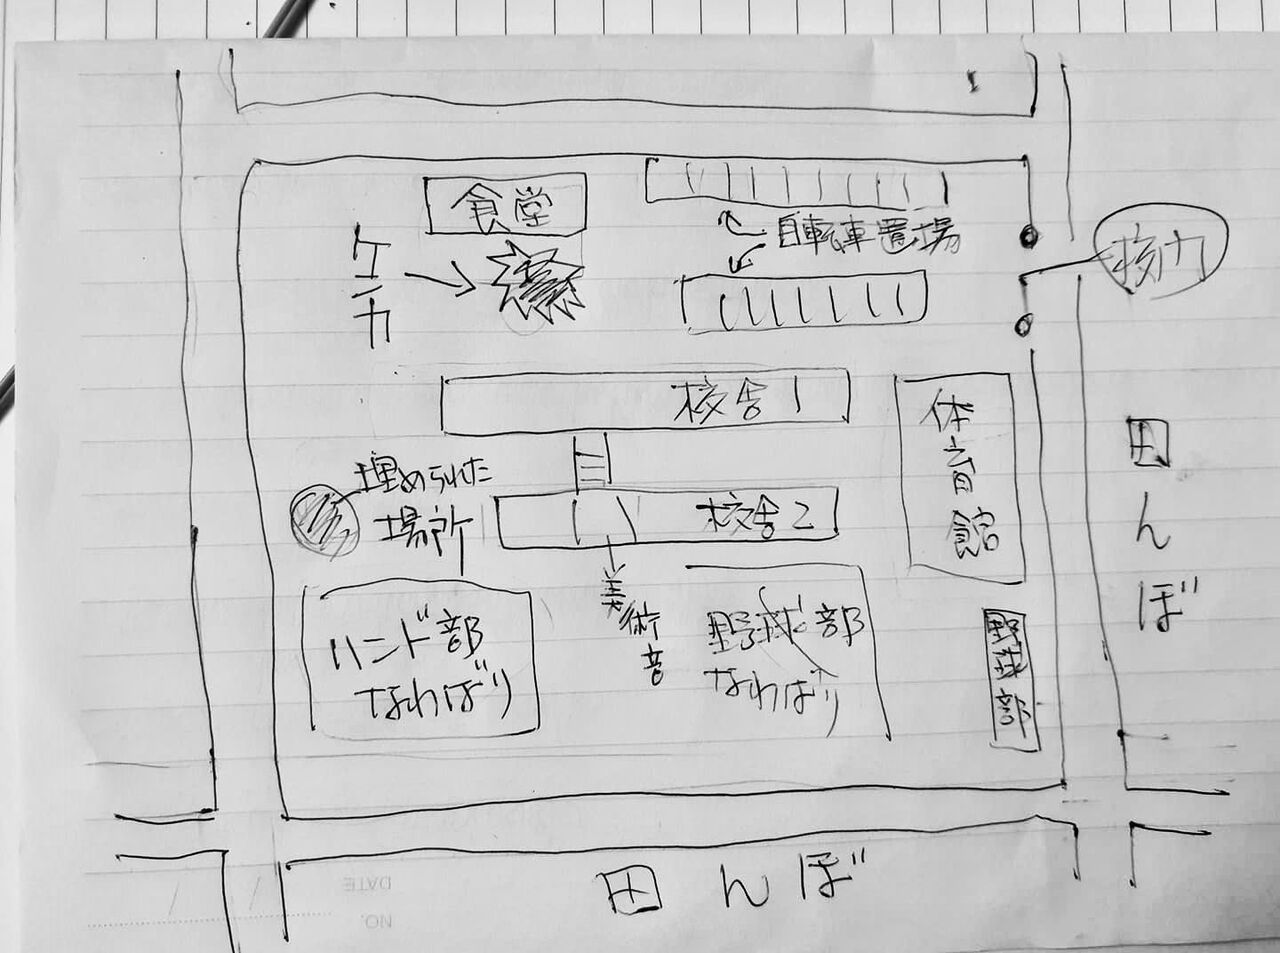 食堂
ケンカ
自転車置場
校舎1
体育館
田んぼ
埋められた
場所
校舎2
美術音
ハンド部
なわばり
野球部
なわばり
野球部
田んぼ
DATE
NO.